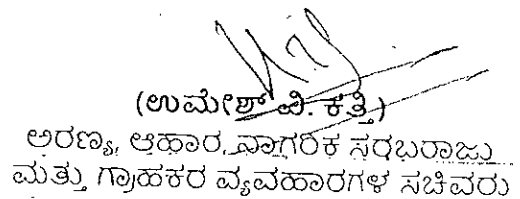 (ಉಮೇಶ್ ವಿ. ಕತ್ತಿ)
ಅರಣ್ಯ, ಆಹಾರ, ನಾಗರಿಕ ಸರಬರಾಜು
ಮತ್ತು ಗ್ರಾಹಕರ ವ್ಯವಹಾರಗಳ ಸಚಿವರು